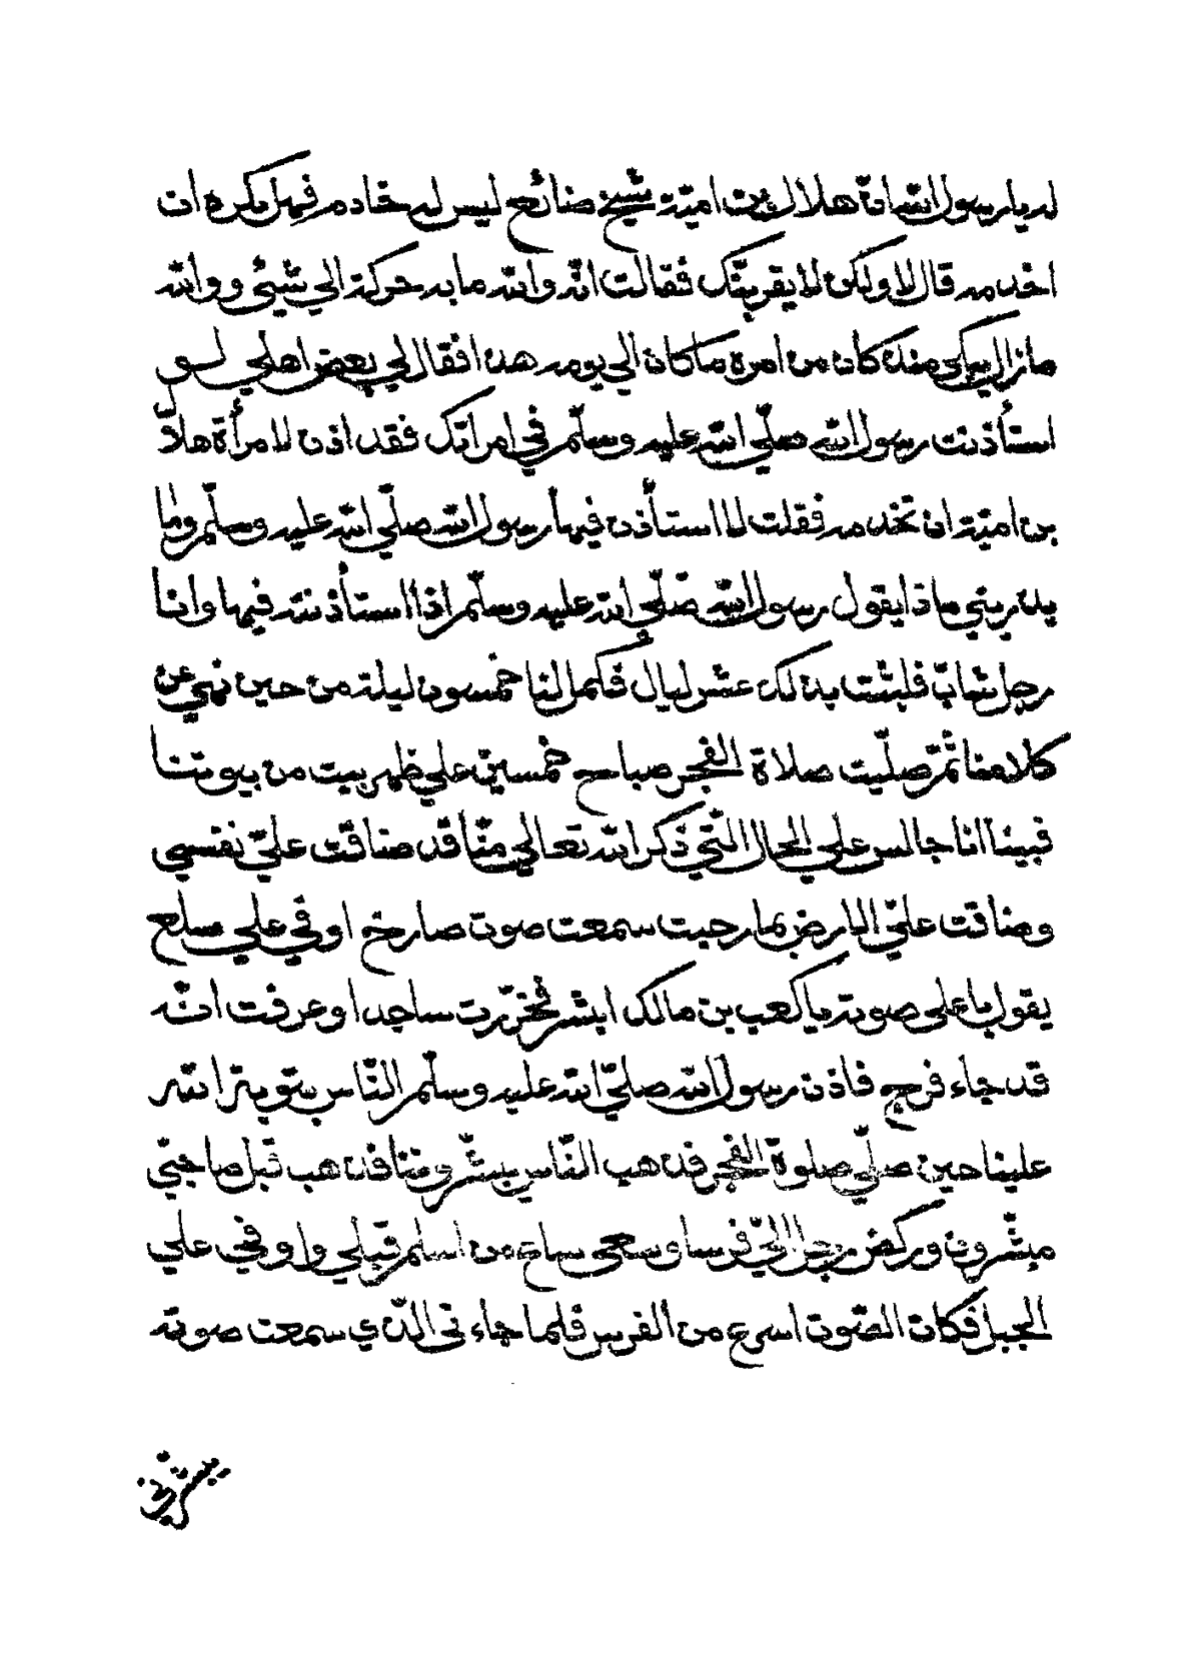 له يا رسول الله ان هلال بن اميّة شيخ ضائع ليس له خادم فهل تكره ان
اخدمه قال لا ولكن لا يقربنّك فقالت انّه والله ما به حركة الي شيئ ووالله
مازال يبكي منذ كان من امره ما كان الي يومه هذا فقال لي بعض اهلي لو
استأذنت رسول الله صلّي الله عليه وسلّم في امراتك فقد اذن لامرأة هلال
بن اميّة ان تخدمه فقلت لا استأذن فيها رسول الله صلّي الله عليه وسلّم وما
يدريني ماذا يقول رسول الله صلّي الله عليه وسلّم اذا استأذنته فيها وانا
رجل شابّ فلبثت بذلك عشر ليال فكمل لنا خمسون ليلة من حين نهي عن
كلامنا ثمّ صلّيت صلاة الفجر صباح خمسين علي ظهر بيت من بيوتنا
فبينا انا جالس علي الحال الّتي ذكر الله تعالي منّا قد ضاقت عليّ نفسي
وضاقت عليّ الارض بما رحبت سمعت صوت صارخ اوفي علي سلع
يقول باعلي صوته يا كعب بن مالك ابشر فخررت ساجدا وعرفت انّه
قد جاء فرج فاذن رسول الله صلّي الله عليه وسلّم النّاس بتوبة الله
علينا حين صلّي صلوة الفجر فذهب النّاس يبشّروننا فذهب قبل صاحبيّ
مبشّرون وركض رجل اليّ فرسا وسعي ساع من اسلم قبلي واوفي علي
الجبل فكان الصّوت اسرع من الفرس فلما جاءني الّذي سمعت صوته
يبشّرني